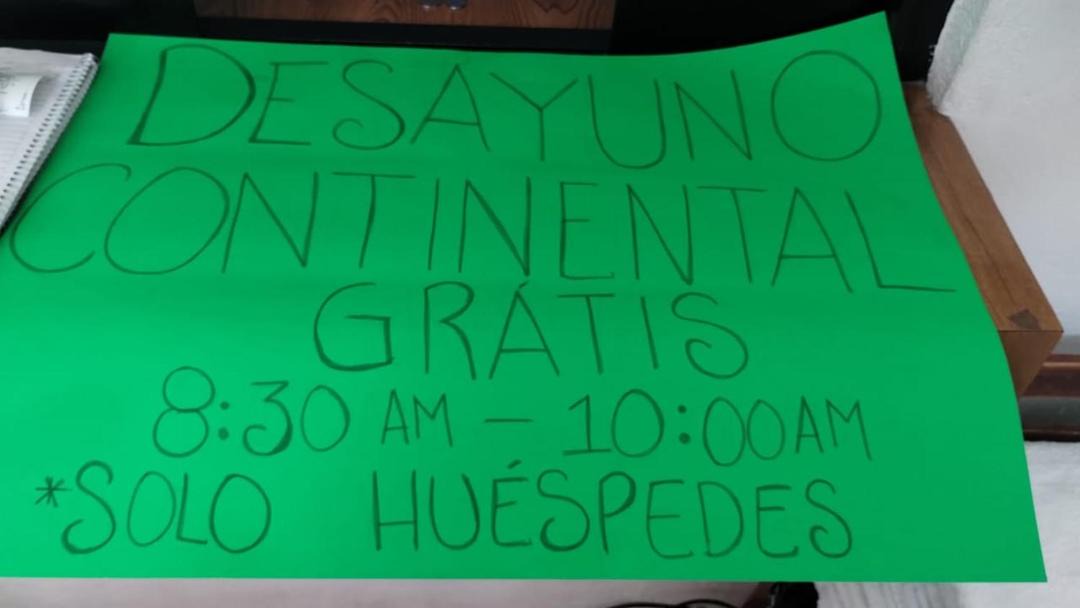 DESAYUNO
CONTINENTAL
GRÁTIS
8:30 AM - 10:00AM
*SOLO HUÉSPEDES